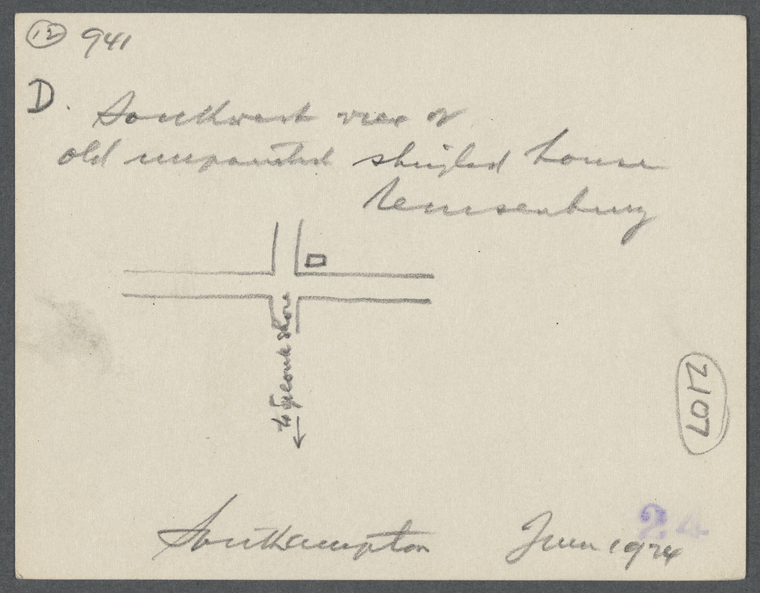 12 941
D. Southwest view of
old unpainted shingled house
Remsenburg
to Speonk shore
2107
24
Southampton June 1924